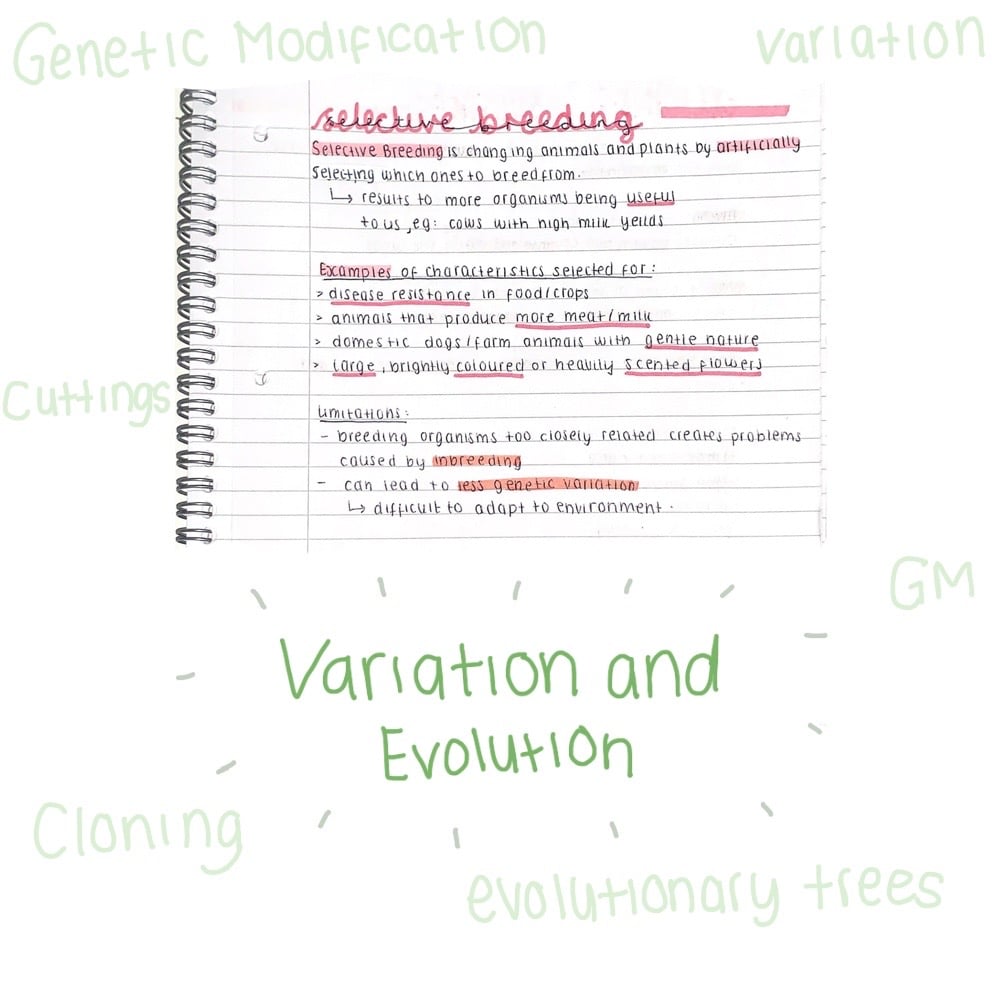 Genetic Modification
variation
selective breeding
Selective Breeding is changing animals and plants by artificially
selecting which ones to breed from.
↳ results to more organisms being useful
to us, eg: cows with high milk yeilds
Examples of characteristics selected for:
> disease resistance in food/crops
> animals that produce more meat/milk
> domestic dogs/farm animals with gentle nature
> large, brightly coloured or heavily scented flowers
Cuttings
Limitations:
- breeding organisms too closely related creates problems
caused by inbreeding
- can lead to less genetic variation
↳ difficult to adapt to environment.
GM
Variation and
Evolution
Cloning
evolutionary trees